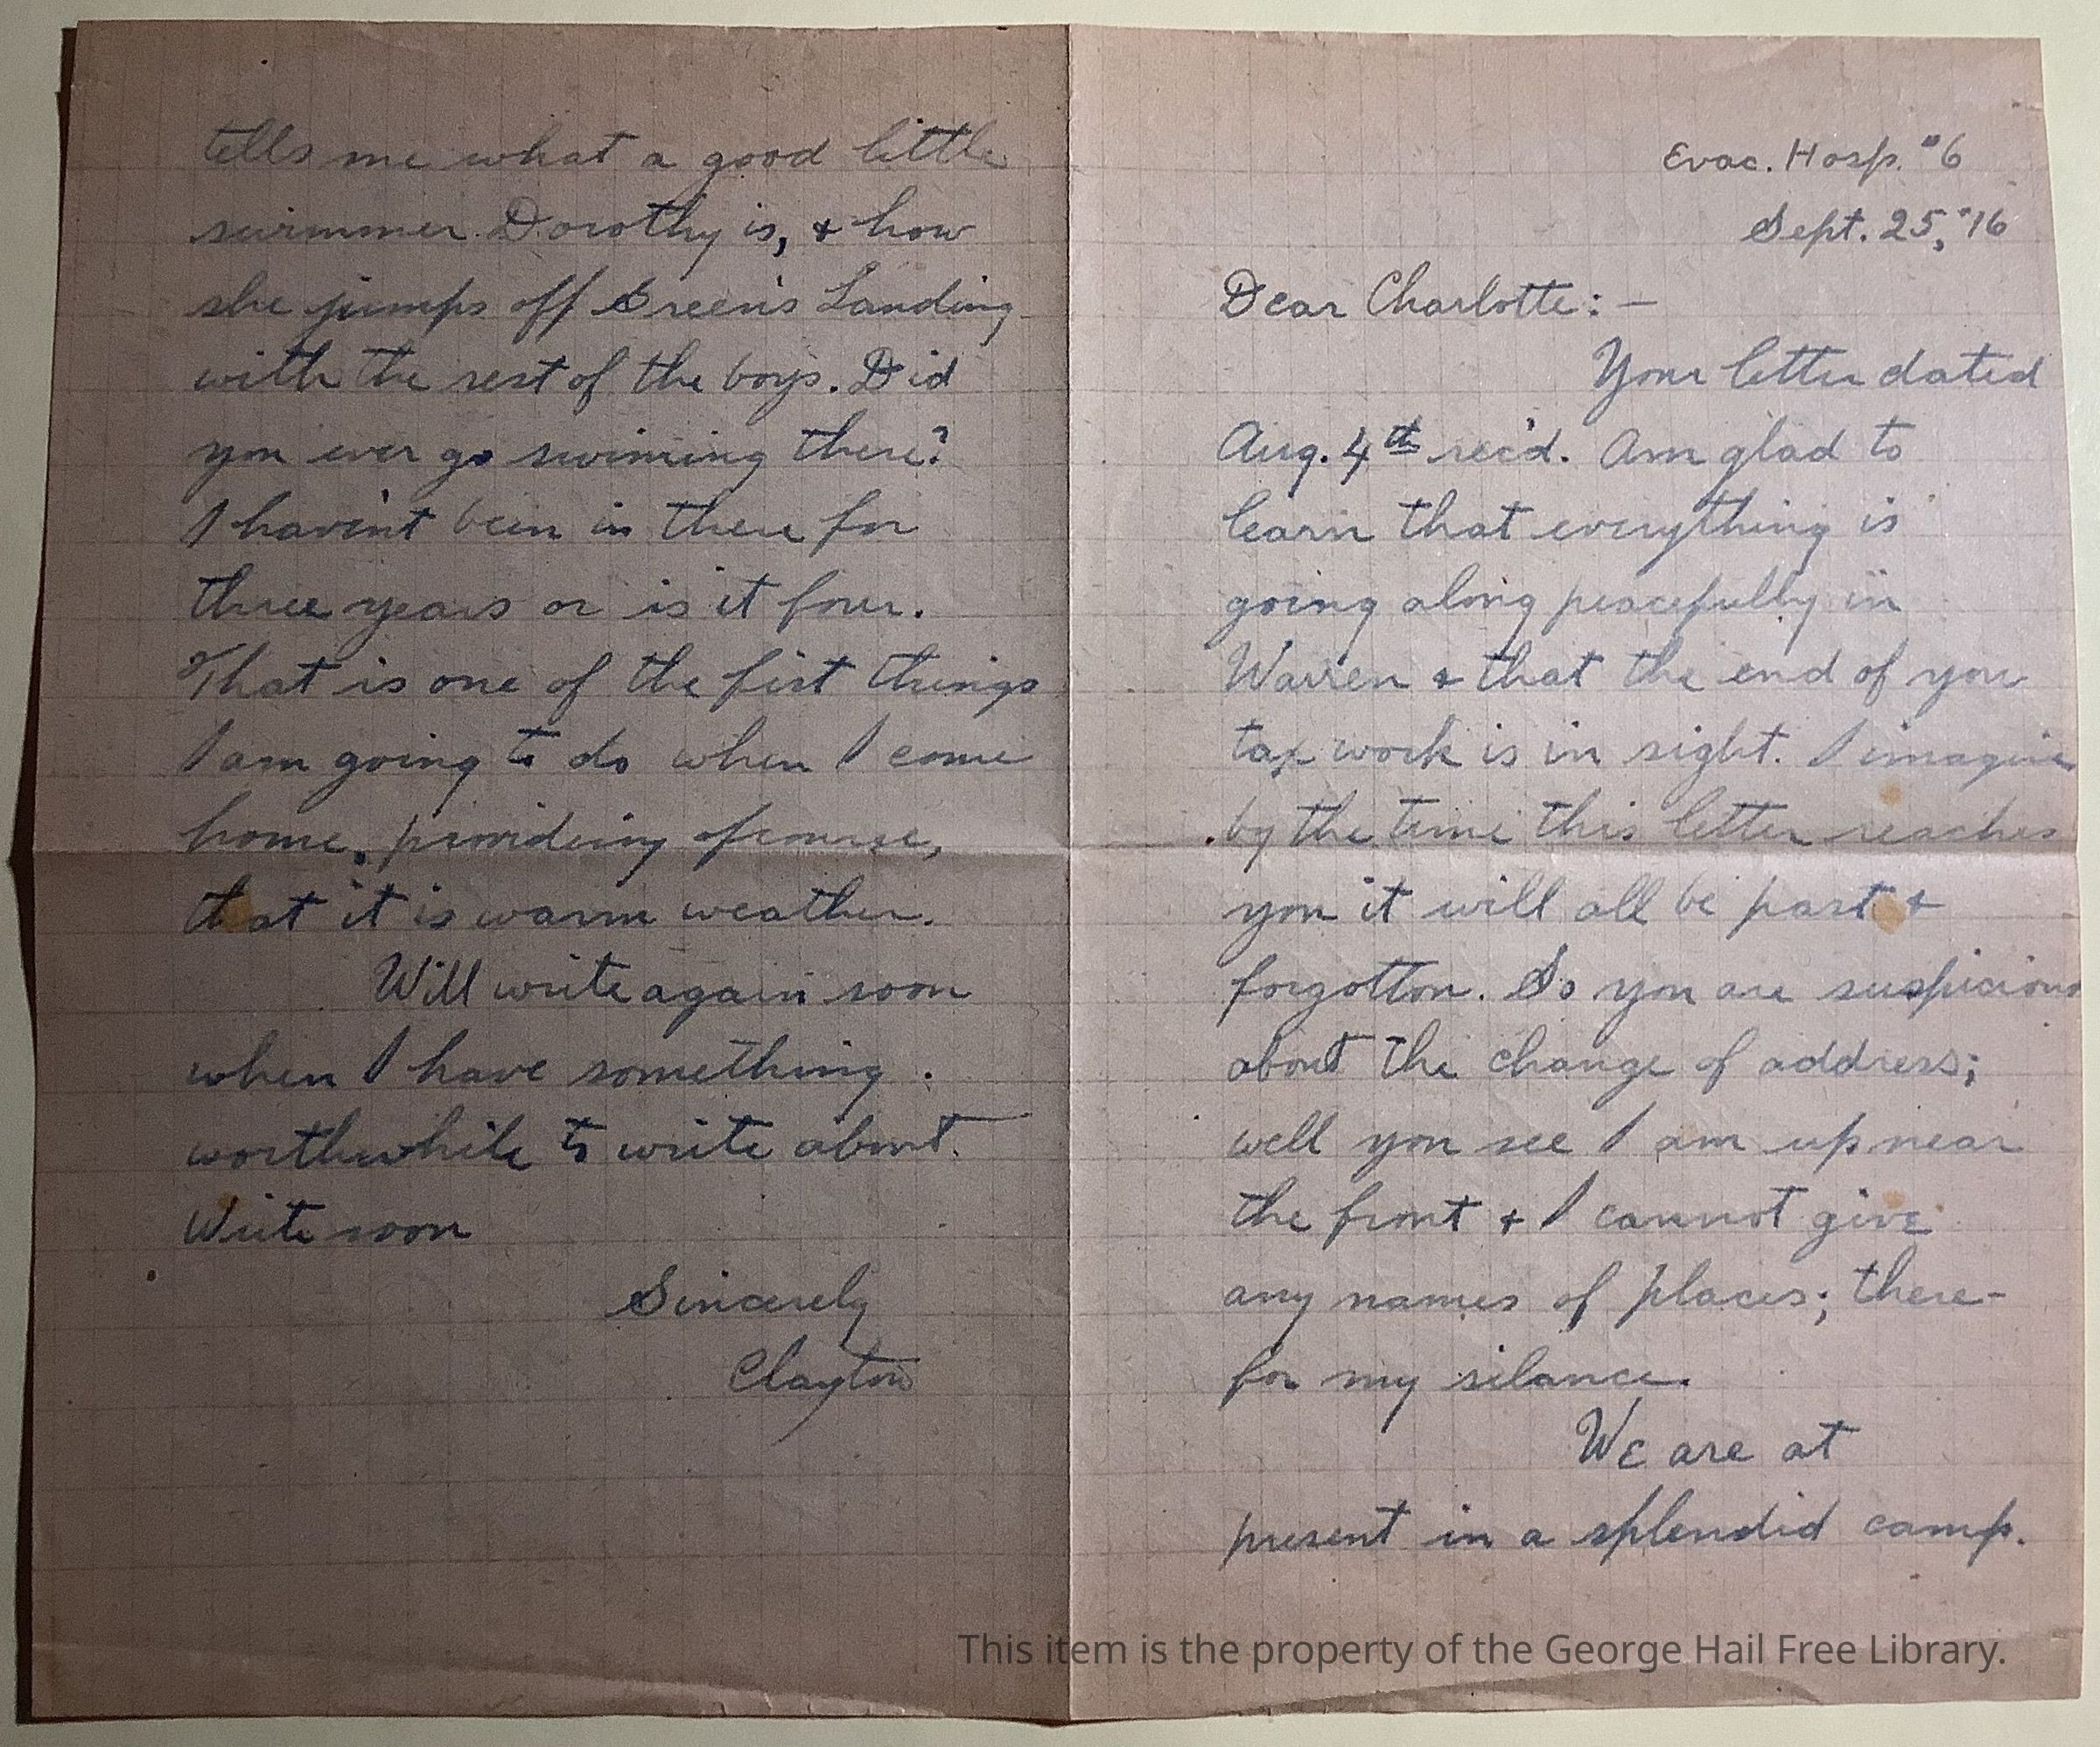 Evac. Hosp. #6
Sept. 25, '16
Dear Charlotte: —
Your letter dated
Aug. 4th rec'd. Am glad to
learn that everything is
going along peacefully in
Warren & that the end of you
tax work is in sight. I imagine
by the time this letter reaches
you it will all be past &
forgotton. So you are suspicious
about the change of address;
well you see I am up near
the front & I cannot give
any names of places; there-
for my silance.
We are at
present in a splendid camp.
tells me what a good little
swimmer Dorothy is, & how
she jumps off Green's Landing
with the rest of the boys. Did
you ever go swimming there?
I havent been in there for
three years or is it four.
That is one of the first things
I am going to do when I come
home, providing of course,
that it is warm weather.
Will write again soon
when I have something
worthwhile to write about.
Write soon
Sincerely
Clayton
This item is the property of the George Hail Free Library.